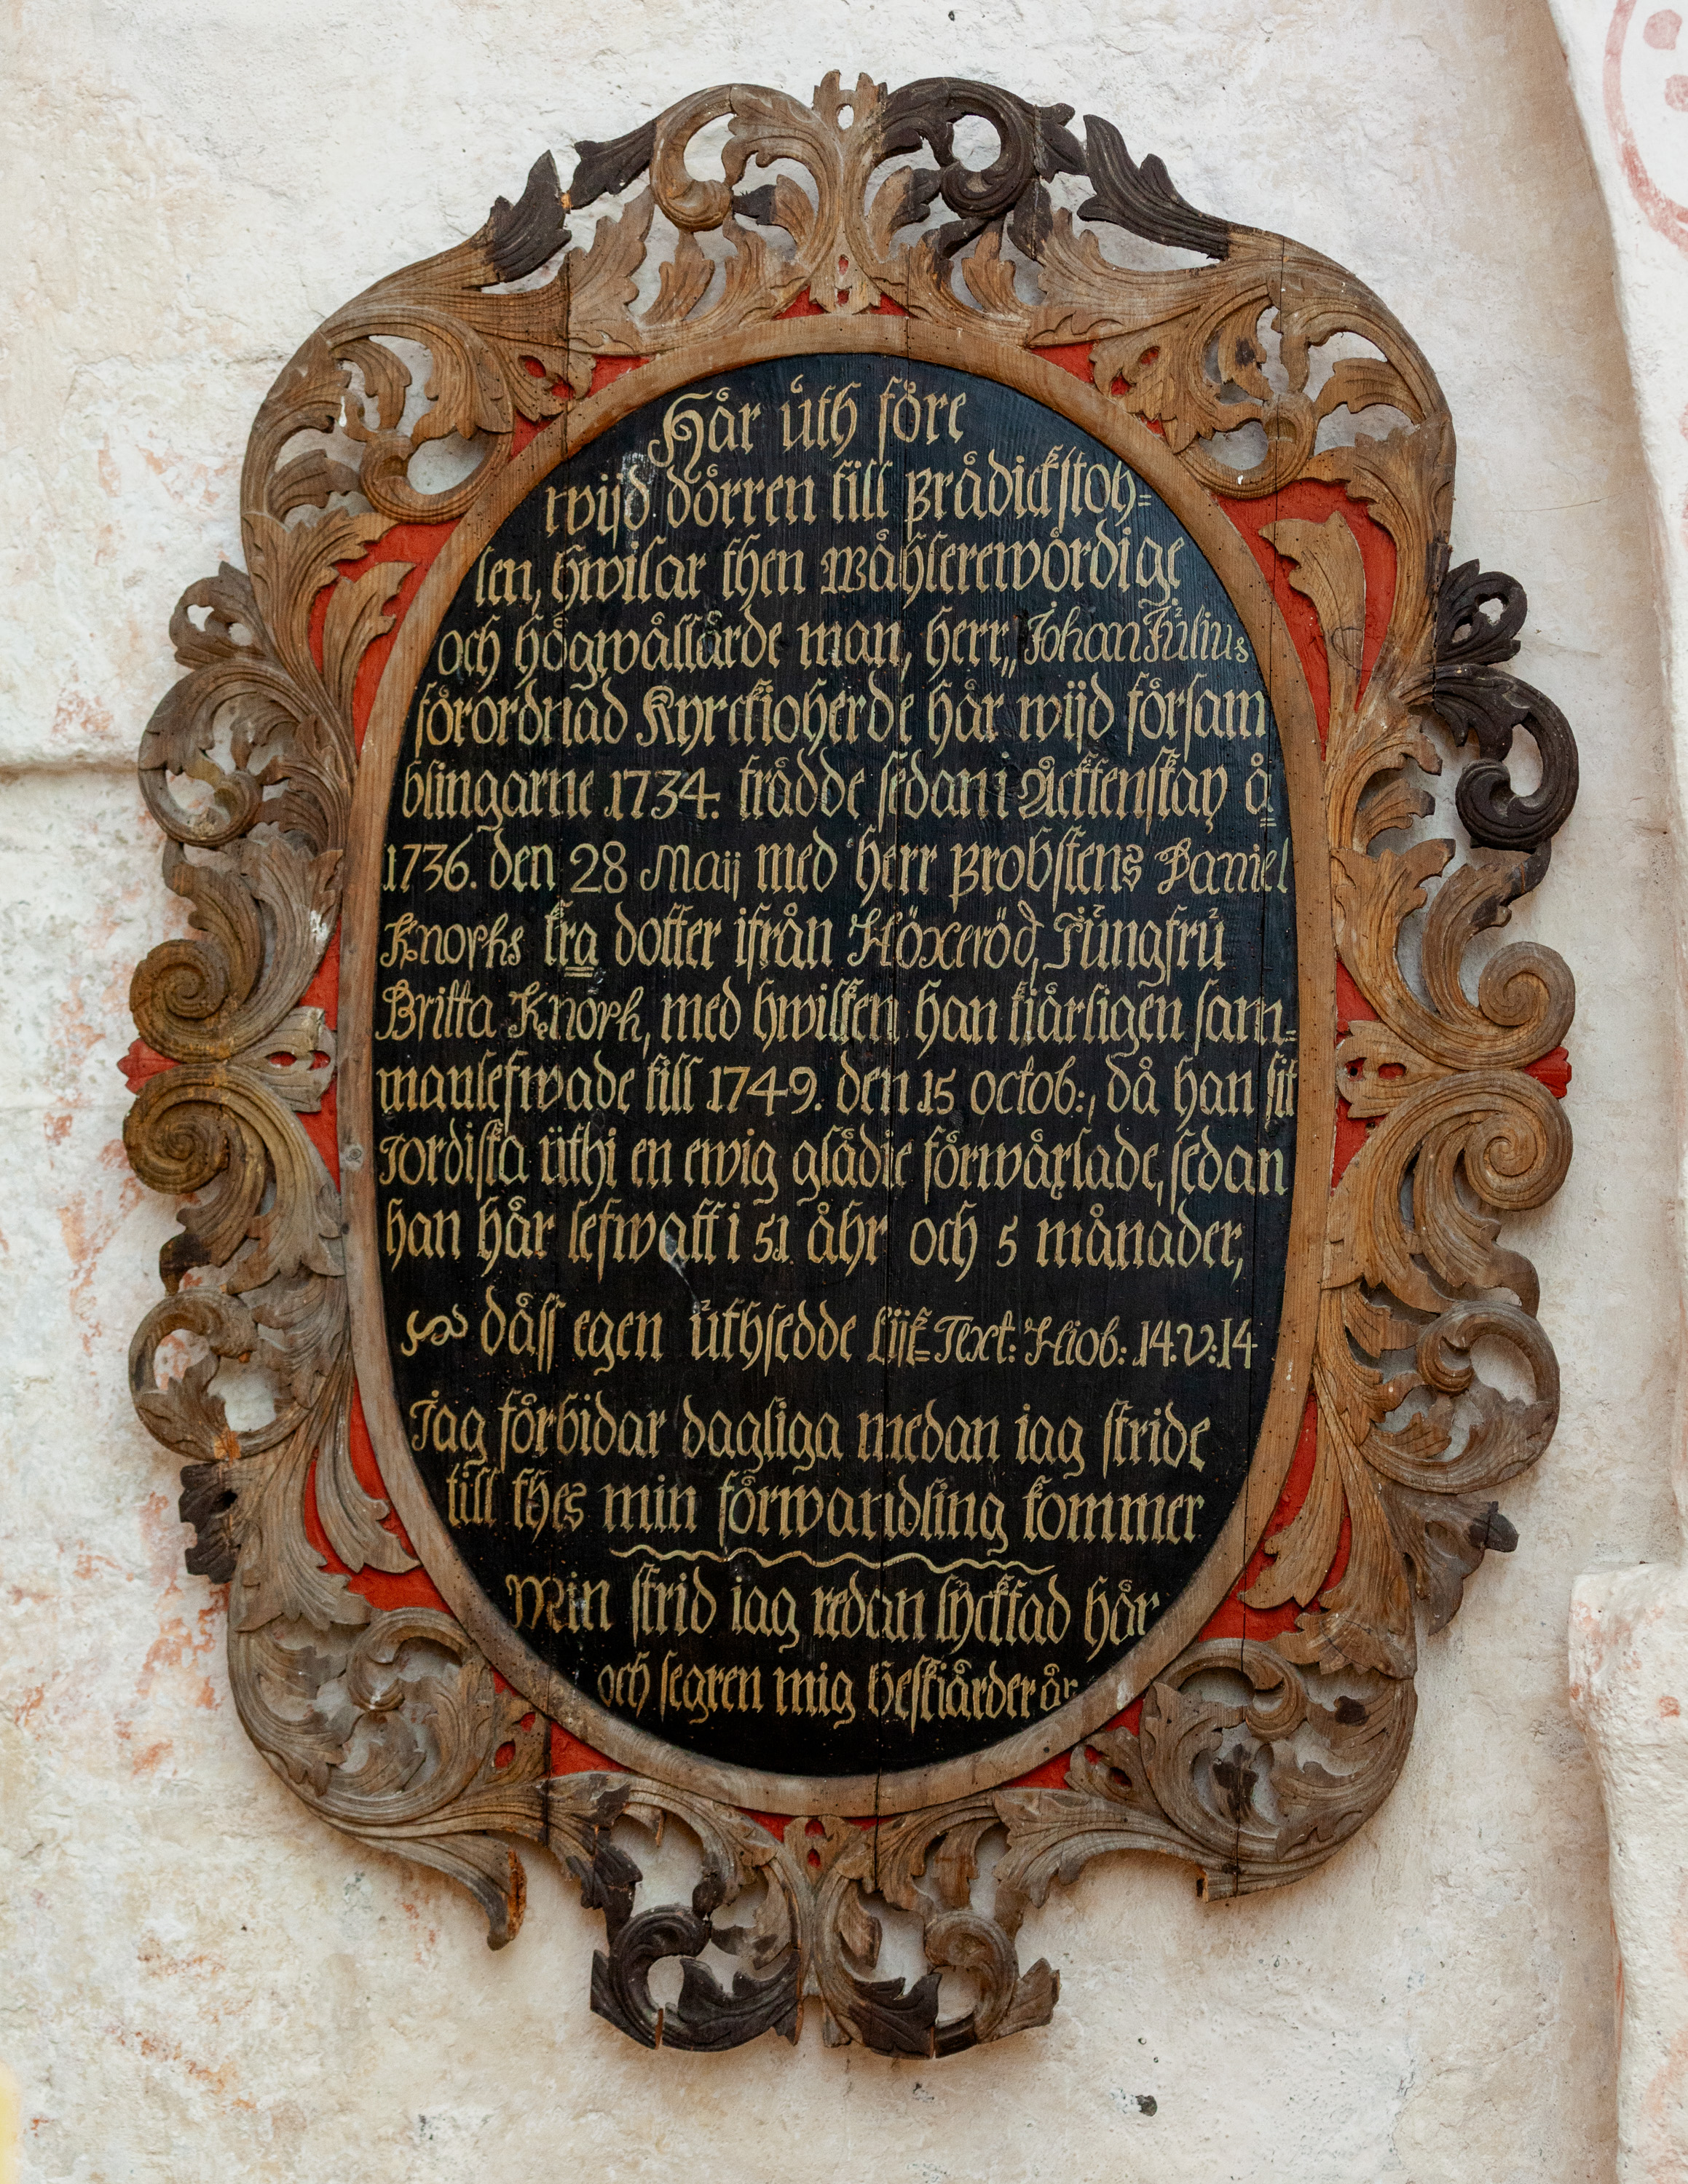 Hår ůth före
wijd dörren till Prådickstoh=
len, hwilar then Wåhlerewördige
och högwållårde man, herr,, Johan Julius
förordnad Kyrckioherde hår wijd försam
blingarne 1734. trådde sedan i Ächtenskap å
1736. den 28 Maij med herr Probstens Daniel
Knorhs kra dotter ifrån Höxeröd, Jůngfrů
Britta Knorh, med hwilken han kiårligen sam=
manlefwade till 1749. den 15 octob:, då han sit
Jordiska üthi en ewig glådie förwåxlade, sedan
han hår lefwatt i 51 åhr och 5 månader,
dåss egen ůthsedde Lijk=Text: Hiob: 14.V:14
Jag förbidar dagliga medan iag stride
till thes min förwandling kommer
Min strid iag redan lÿcktad hår
och segren mig beskiårder år